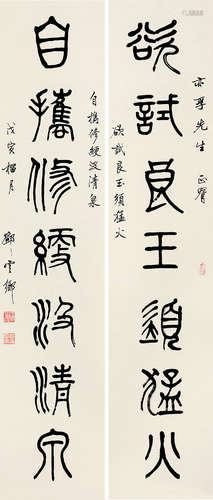 亦尊先生 正腕
欲試良玉須猛火
欲試良玉須猛火
自攜修綆汲清泉
自攜修綆汲清泉
戊寅榴月
鄧雲鄉